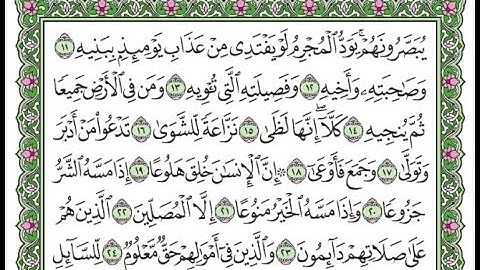 يُبَصَّرُونَهُمْ ۚ يَوَدُّ الْمُجْرِمُ لَوْ يَفْتَدِى مِنْ عَذَابِ يَوْمِئِذٍۭ بِبَنِيهِ ١١
وَصَٰحِبَتِهِۦ وَأَخِيهِ ١٢ وَفَصِيلَتِهِ الَّتِى تُـْٔوِيهِ ١٣ وَمَن فِى الْأَرْضِ جَمِيعًا
ثُمَّ يُنجِيهِ ١٤ كَلَّآ ۖ إِنَّهَا لَظَىٰ ١٥ نَزَّاعَةً لِّلشَّوَىٰ ١٦ تَدْعُوا۟ مَنْ أَدْبَرَ
وَتَوَلَّىٰ ١٧ وَجَمَعَ فَأَوْعَىٰٓ ١٨ ۞ إِنَّ الْإِنسَٰنَ خُلِقَ هَلُوعًا ١٩ إِذَا مَسَّهُ الشَّرُّ
جَزُوعًا ٢٠ وَإِذَا مَسَّهُ الْخَيْرُ مَنُوعًا ٢١ إِلَّا الْمُصَلِّينَ ٢٢ الَّذِينَ هُمْ
عَلَىٰ صَلَاتِهِمْ دَآئِمُونَ ٢٣ وَالَّذِينَ فِىٓ أَمْوَٰلِهِمْ حَقٌّ مَّعْلُومٌ ٢٤ لِّلسَّآئِلِ